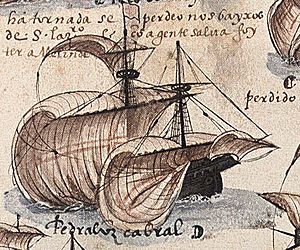 ha tornada se perdeo nos bayxos
de S. laz.º se
a gente salua foy
ter a Melinde
perdido
Pedralvz cabral D